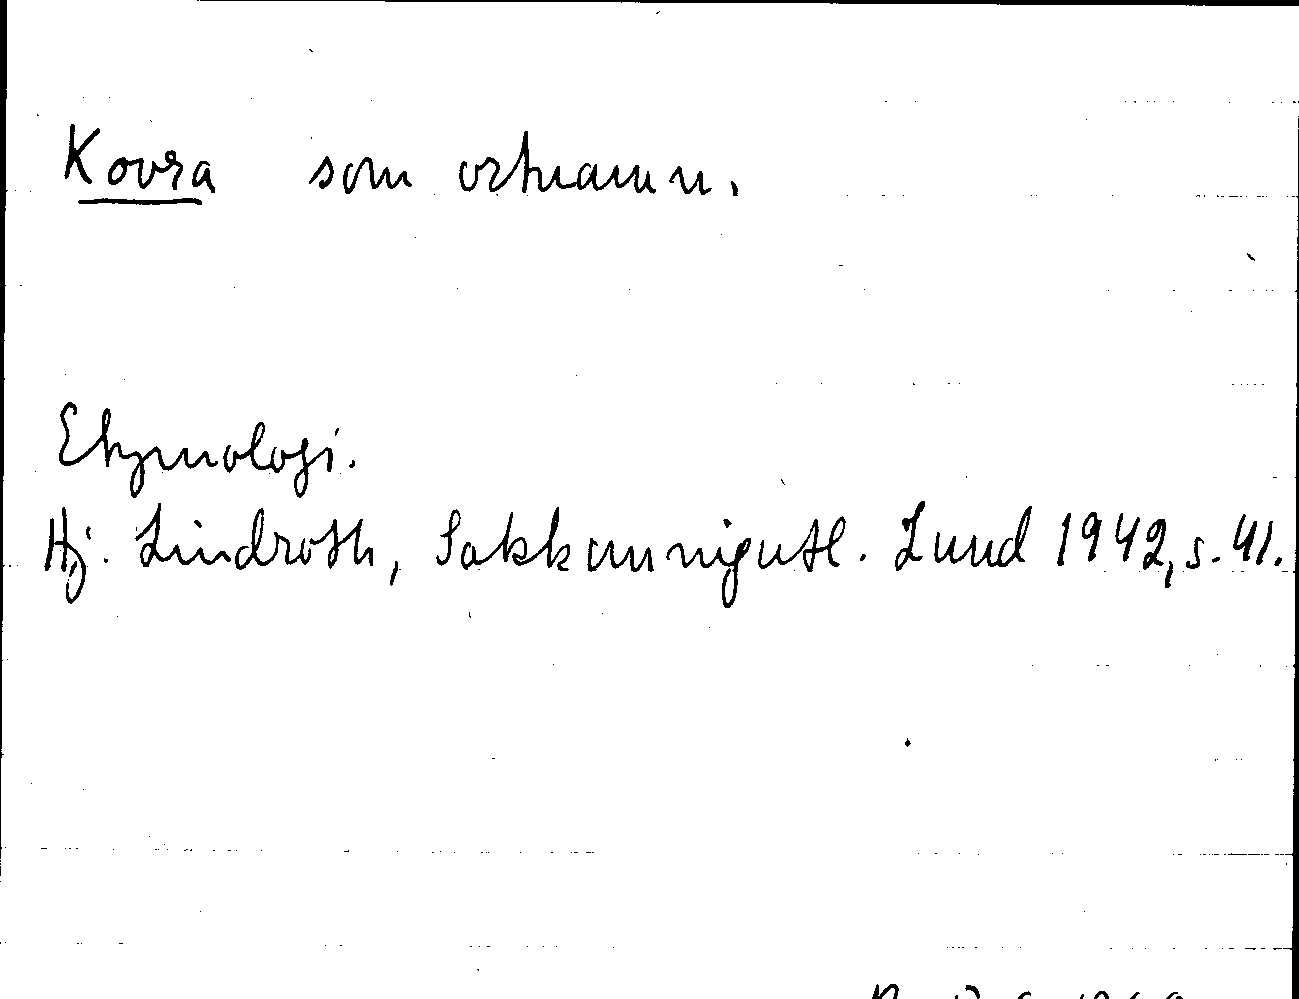 Kovra som ortnamn.
Etymologi.
Hj. Lindroth, Sakkunnigutl. Lund 1942, s. 41.